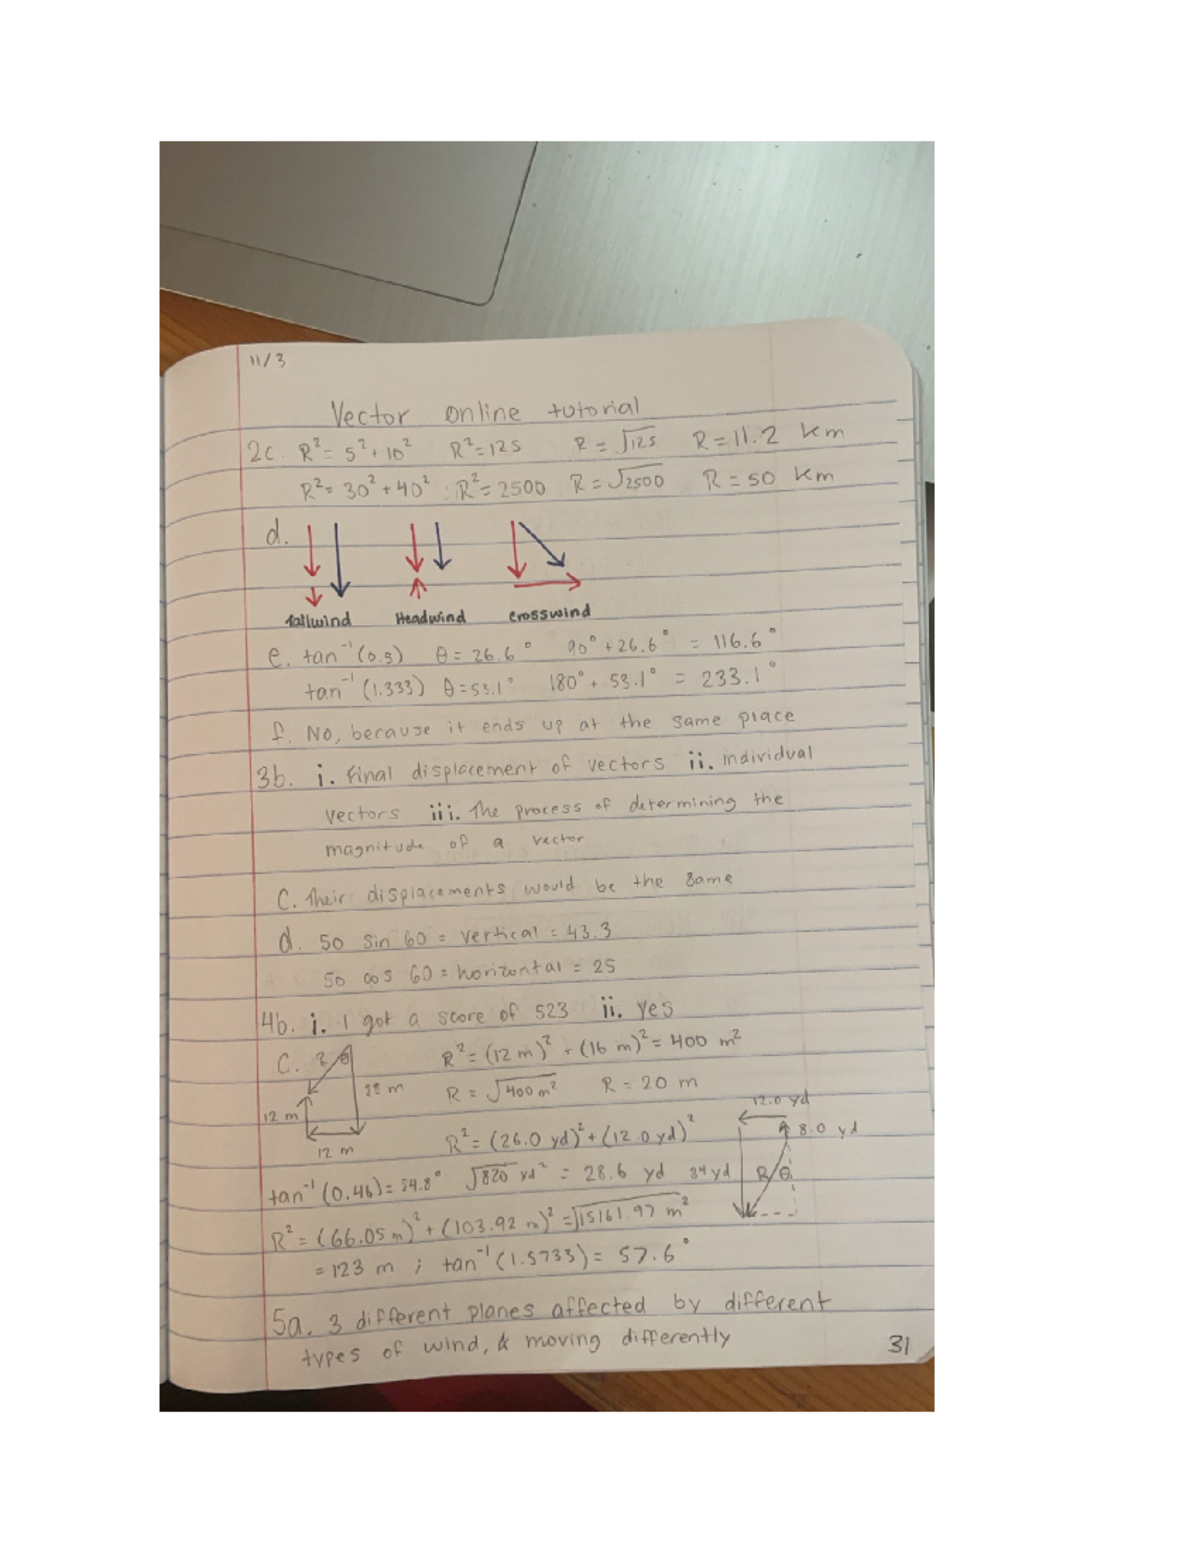 11/3
Vector online tutorial
2c. R² = 5² + 10² R² = 125 R = √125 R = 11.2 km
R² = 30² + 40² R² = 2500 R = √2500 R = 50 km
d.
Tailwind Headwind Crosswind
e. tan⁻¹(0.5) θ = 26.6° 90° + 26.6° = 116.6°
tan⁻¹(1.333) θ = 53.1° 180° + 53.1° = 233.1°
f. No, because it ends up at the same place
3b. i. Final displacement of vectors ii. individual
vectors iii. The process of determining the
magnitude of a vector
C. Their displacements would be the same
d. 50 sin 60 = vertical = 43.3
50 cos 60 = horizontal = 25
4b. i. I got a score of 523 ii. yes
C. R² = (12 m)² + (16 m)² = 400 m²
28 m R = √400 m² R = 20 m
12 m 12.0 yd
12 m R² = (26.0 yd)² + (12.0 yd)² 8.0 yd
tan⁻¹(0.46) = 24.8° √820 yd² = 28.6 yd 34 yd R θ
R² = (66.05 m)² + (103.92 m)² = √15161.97 m²
= 123 m ; tan⁻¹(1.5733) = 57.6°
5a. 3 different planes affected by different
types of wind, & moving differently
31